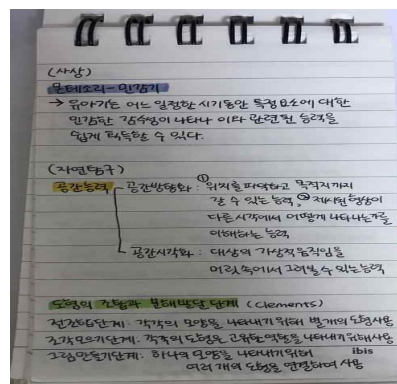 (사상)
몬테소리-민감기
→ 유아기는 어느 일정한 시기동안 특정 요소에 대한
민감한 감수성이 나타나 이와 관련된 능력을
쉽게 획득할 수 있다.
(자연탐구)
공간능력 공간방향화 : ① 위치를 파악하고 목적지까지
갈 수 있는 능력, ② 제시된 형상이
다른 시각에서 어떻게 나타나는가를
이해하는 능력
공간시각화 : 대상의 가상적 움직임을
머릿속에서 그려볼 수 있는 능력
도형의 조합과 분해 발달 단계 (Clements)
전조합단계: 각각의 모양을 나타내기 위해 별개의 도형 사용
조각모으기단계: 각각의 도형은 고유한 역할을 나타내기 위해 사용
그림만들기단계: 하나의 모양을 나타내기 위해
여러 개의 도형을 연결하여 사용
ibis